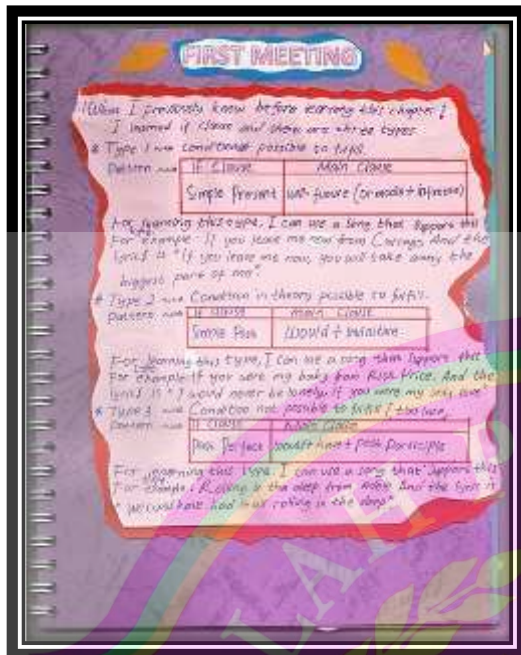 FIRST MEETING
What I previously know before learning this chapter?
I learned if clause and there are three types
* Type 1 Condition possible to fulfil.
Pattern If Clause Main Clause
Simple Present will-future (or modal + infinitive)
For learning this type, I can use a song that supports this
For example: If you leave me now from And the
lyrics is "If you leave me now, you will take away the
biggest part of me"
* Type 2 Condition in theory possible to fulfil.
Pattern If clause Main Clause
Simple Past Would + infinitive
For learning this type, I can use a song that supports this
For example If you were my baby from Rick Price. And the
lyrics is "I would never be lonely, if you were my only love
* Type 3 Condition not possible to fulfil (too late)
Pattern If Clause Main Clause
Past Perfect would + have + past participle
For learning this type, I can use a song that supports this
For example: Rolling in the deep from And the lyrics is
"We could have had it all rolling in the deep"
LAH